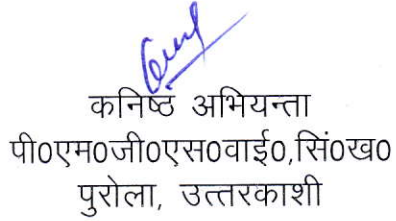 कनिष्ठ अभियन्ता
पी0एम0जी0एस0वाई0,सिं0ख0
पुरोला, उत्तरकाशी